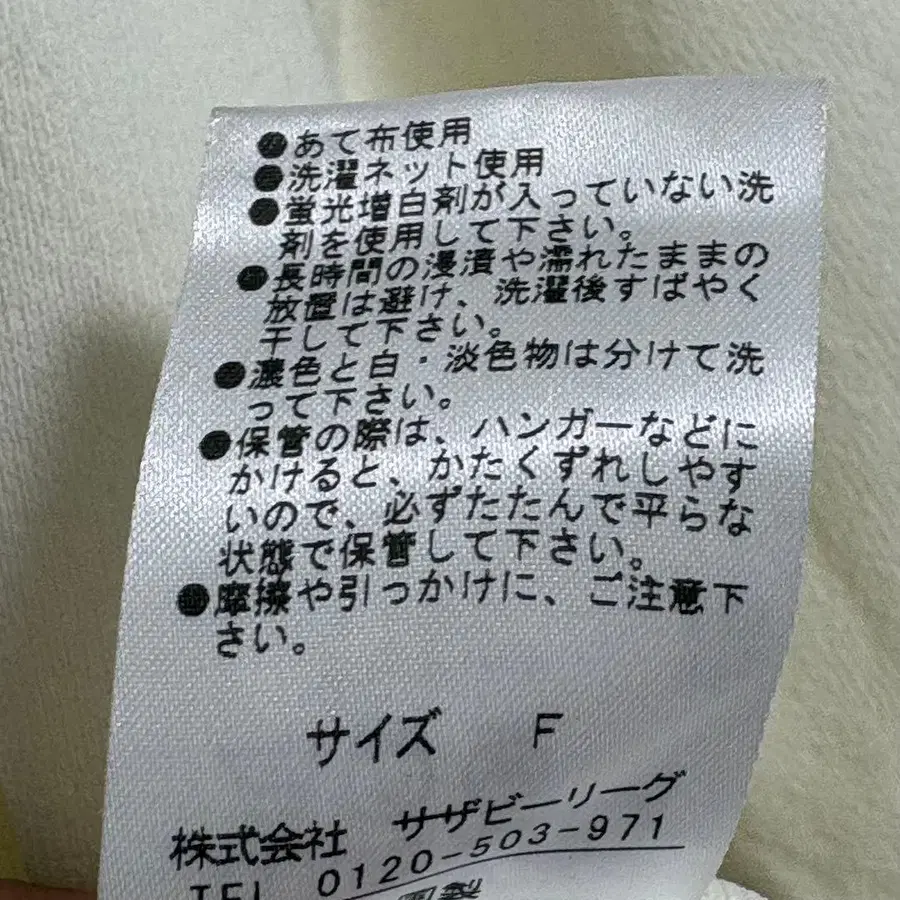 ●あて布使用
●洗濯ネット使用
●蛍光増白剤が入っていない洗
剤を使用して下さい。
●長時間の浸漬や濡れたままの
放置は避け、洗濯後すばやく
干して下さい。
●濃色と白・淡色物は分けて洗
って下さい。
●保管の際は、ハンガーなどに
かけると、かたくずれしやす
いので、必ずたたんで平らな
状態で保管して下さい。
●摩擦や引っかけに、ご注意下
さい。
サイズ F
株式会社 サザビーリーグ
TEL 0120-503-971
製